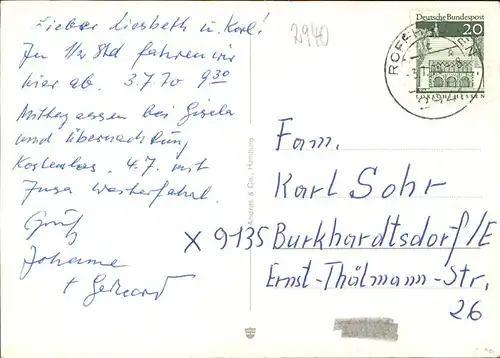 Lieber Liesbeth u. Karl!
In 1/2 Std fahren wir
hier ab. 3.7.70 9³⁰
Mittagessen bei Gisela
und Übernachtung
Kostenlos. 4.7. mit
Inga Weiterfahrt.
Gruß
Johanne
+ Gerhard
2940
Deutsche Bundespost
20
Andres & Co., Hamburg
Fam.
Karl Sohr
x 9135 Burkhardtsdorf/E
Ernst-Thälmann-Str.
26